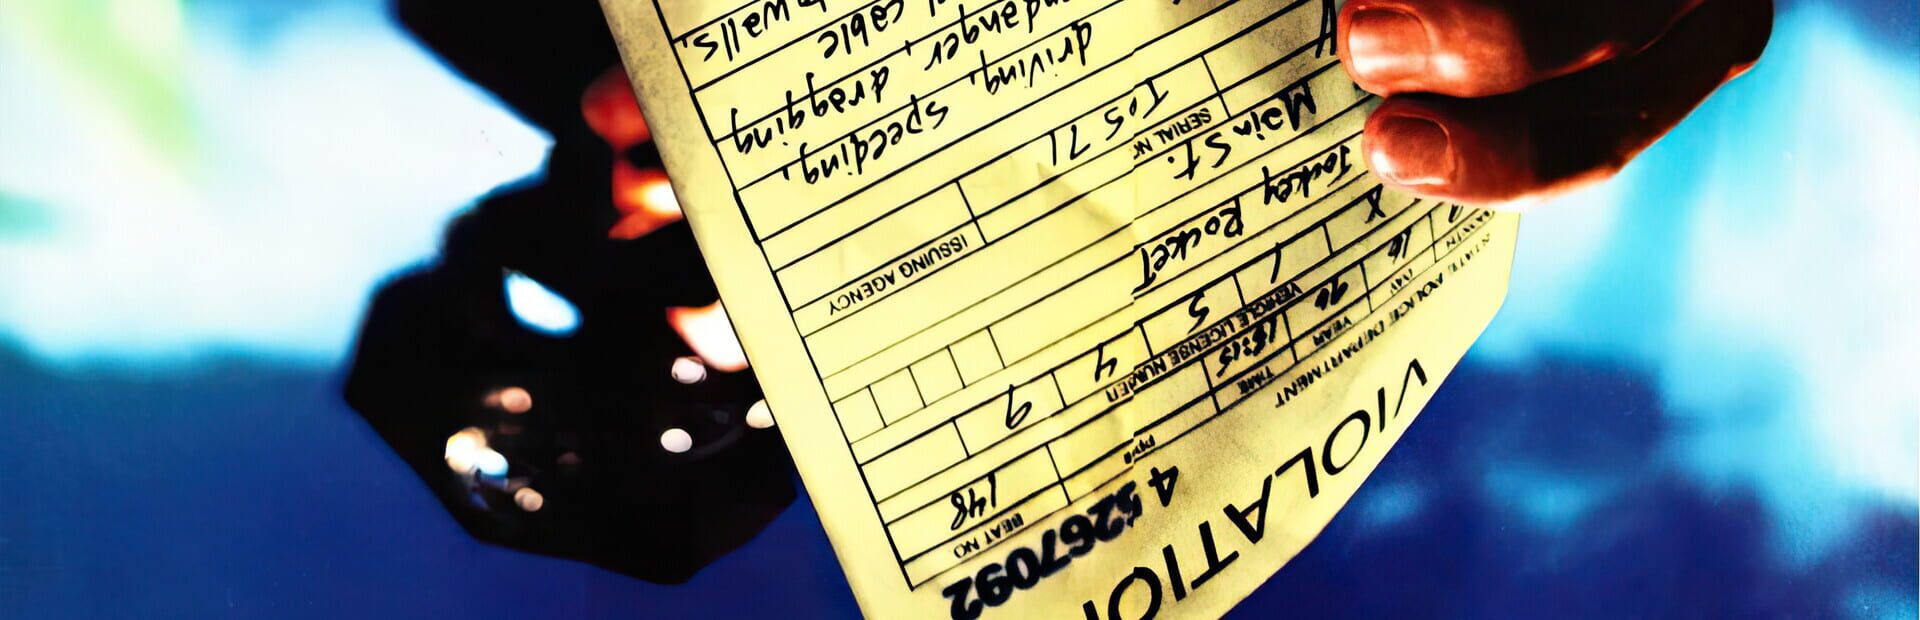 VIOLATIO
4 5267092
POLICE DEPARTMENT
DAY YEAR TIME BEAT NO
16 90 16:15 148
VEHICLE LICENSE NUMBER
X 1 5 4 9
Jockey Rocket
Main St.
SERIAL Nr ISSUING AGENCY
TOS 71
driving, speeding,
ndanger, dragging
cable
walls.